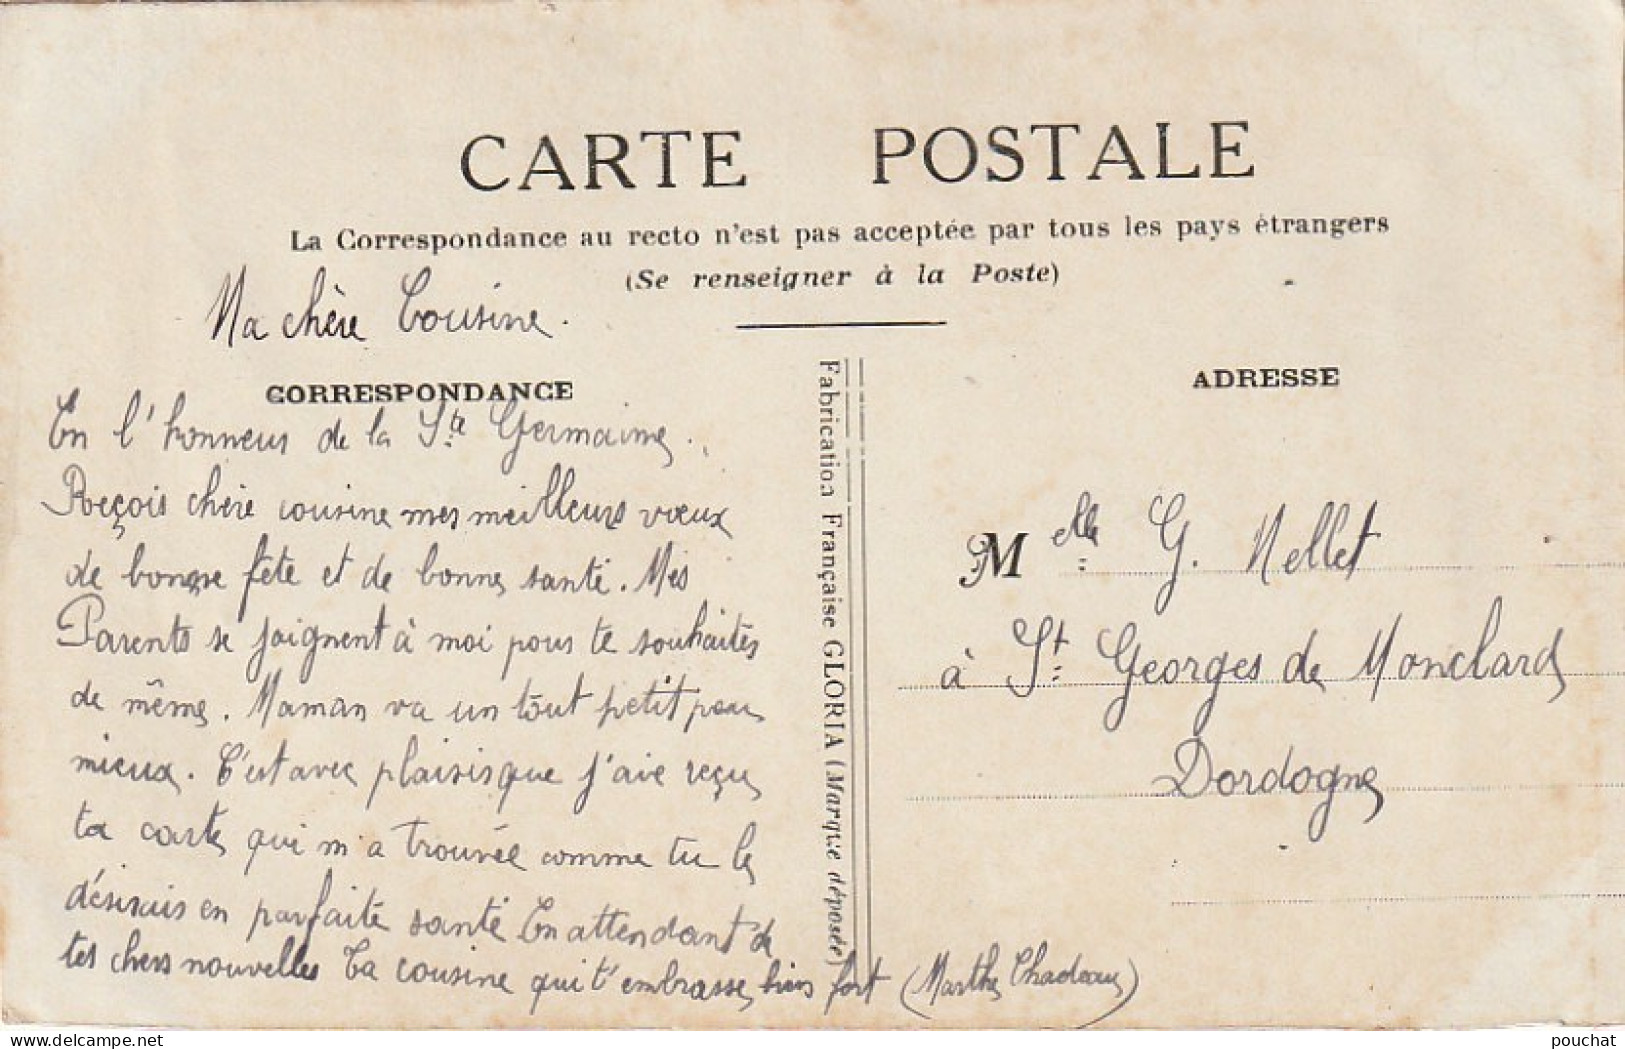 CARTE POSTALE
La Correspondance au recto n'est pas acceptée par tous les pays étrangers
(Se renseigner à la Poste)
Ma chère Cousine.
CORRESPONDANCE
En l'honneur de la Ste Germaine.
Reçois chère cousine mes meilleurs vœux
de bonne fête et de bonne santé. Mes
Parents se joignent à moi pour te souhaiter
de même. Maman va un tout petit peu
mieux. C'est avec plaisir que j'aie reçu
ta carte qui m'a trouvée comme tu le
désirais en parfaite santé En attendant de
tes chers nouvelles Ta cousine qui t'embrasse bien fort (Marthe Chadeau)
Fabrication Française GLORIA (Marque déposée)
ADRESSE
Melle G. Nellet
à St Georges de Monclard
Dordogne
delcampe.net
pouchat